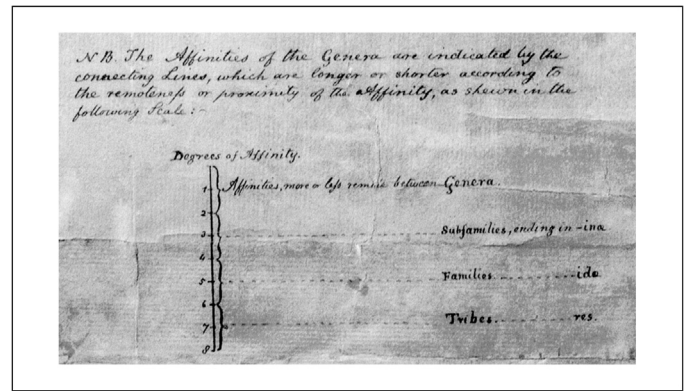 N.B. The Affinities of the Genera are indicated by the
connecting Lines, which are longer or shorter according to
the remoteness or proximity of the Affinity, as shewn in the
following Scale:-
Degrees of Affinity.
1 Affinities, more or less remote between Genera.
2
3 Subfamilies, ending in -inæ
4
5 Families idæ
6
7 Tribes res.
8